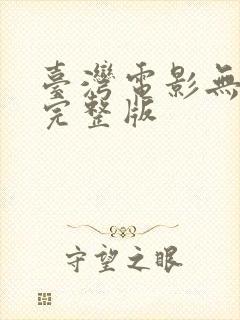 臺灣電影無
完整版
守望之眼